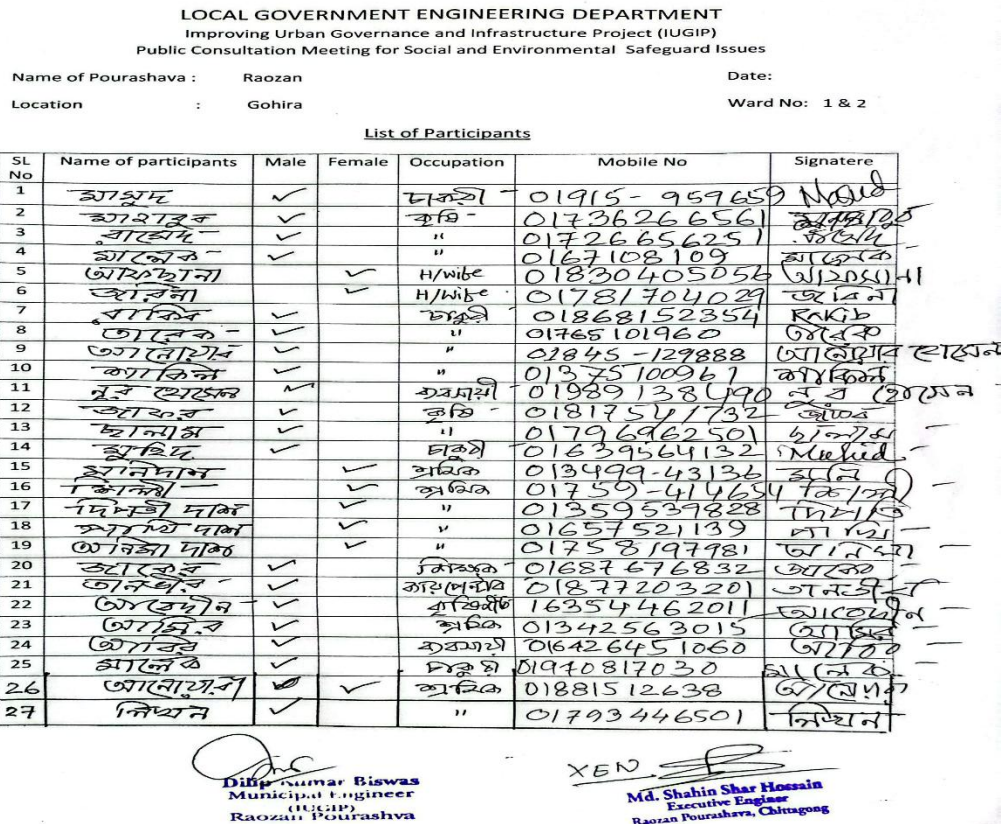 LOCAL GOVERNMENT ENGINEERING DEPARTMENT
Improving Urban Governance and Infrastructure Project (IUGIP)
Public Consultation Meeting for Social and Environmental Safeguard Issues
Name of Pourashava : Raozan Date:
Location : Gohira Ward No: 1 & 2
List of Participants
SL No Name of participants Male Female Occupation Mobile No Signatere
1 মাসুদ ✓ চাকরী 01915-959659 Masud
2 মাহাবুব ✓ কৃষি - 01736266561
3 ✓ " 01726656251
4 মালেক ✓ " 0167108109 মালেক
5 আফছানা ✓ H/Wife 01830405056 আফসানা
6 ✓ H/Wife 01781704029
7 রাকিব ✓ চাকুরী 01868152354 Rakib
8 তারেক ✓ " 01765101960 তারেক
9 আনোয়ার ✓ " 01845-129888 আনোয়ার হোসেন
10 ✓ " 01375100961
11 নুর হোসেন ✓ ব্যবসায়ী 01989138490 নুর হোসেন
12 জাফর ✓ কৃষি 01817541732 জাফর
13 ছালাম ✓ " 01796962501 ছালাম
14 মুহিদ ✓ চাকুরী 01639564132
15 ✓ শ্রমিক 013499-43136
16 ✓ শ্রমিক 01759-414654
17 দিপালী দাশ ✓ " 01359539828
18 দাশ ✓ " 01657521139
19 অনিমা দাশ ✓ " 01758197981 অনিমা
20 জাবেদ ✓ 01687676832
21 তানভীর ✓ 01877203201 তানভীর
22 আবেদীন ✓ 16354462011 আবেদীন
23 আমির ✓ শ্রমিক 01342563015 আমির
24 আবির ✓ ব্যবসায়ী 016426451060
25 মালেক ✓ চাকুরী 01940817030 মালেক
26 আনোয়ারা ✓ শ্রমিক 01881512638
27 লিখন ✓ " 01793446501 লিখন
XEN
Dilip Kumar Biswas
Municipal Engineer
(IUGIP)
Raozan Pourashva
Md. Shahin Shar Hossain
Executive Engineer
Raozan Pourashava, Chittagong